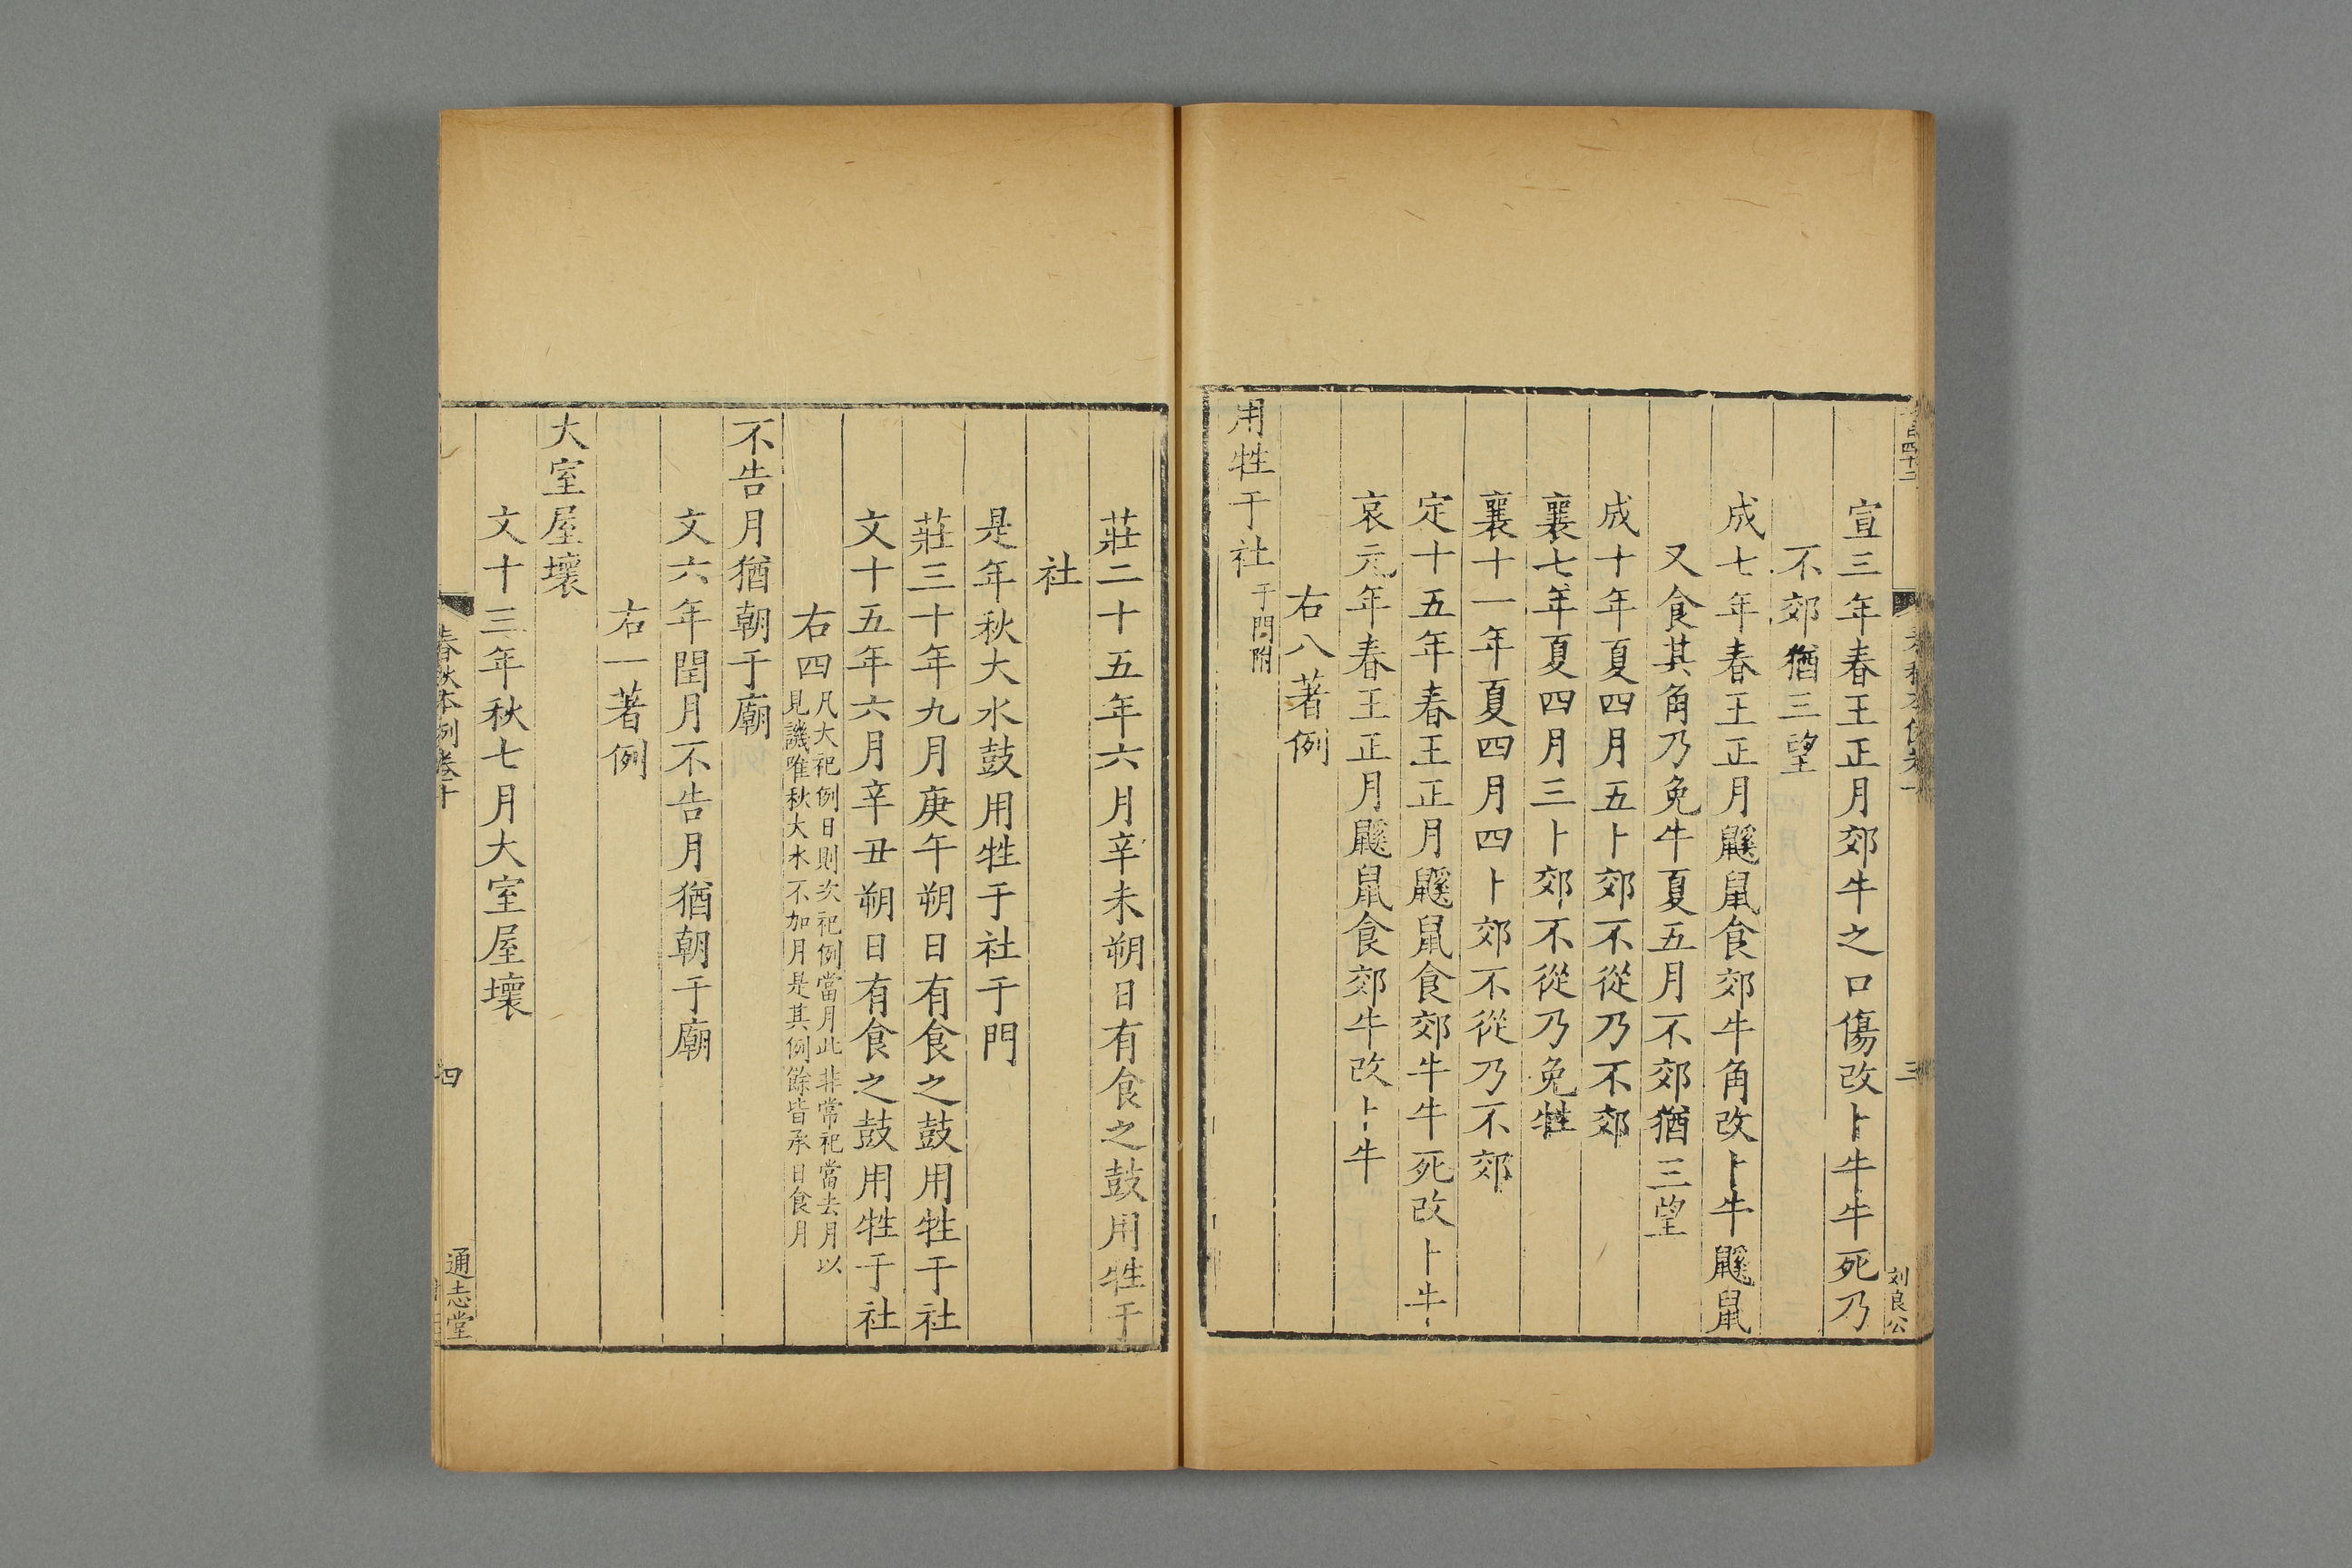 宣三年春王正月郊牛之口傷改卜牛牛死乃
不郊猶三望
成七年春王正月鼷鼠食郊牛角改卜牛鼷鼠
又食其角乃免牛夏五月不郊猶三望
成十年夏四月五卜郊不從乃不郊
襄七年夏四月三卜郊不從乃免牲
襄十一年夏四月四卜郊不從乃不郊
定十五年春王正月鼷鼠食郊牛牛死改卜牛
哀元年春王正月鼷鼠食郊牛改卜牛
右八著例
用牲于社于門附
三
刘良公
莊二十五年六月辛未朔日有食之鼓用牲于
社
是年秋大水鼓用牲于社于門
莊三十年九月庚午朔日有食之鼓用牲于社
文十五年六月辛丑朔日有食之鼓用牲于社
右四
凡大祀例日則次祀例當月此非常祀當去月以
見譏唯秋大水不加月是其例餘皆承日食月
不告月猶朝于廟
文六年閏月不告月猶朝于廟
右一著例
大室屋壞
文十三年秋七月大室屋壞
春秋本例卷十
四
通志堂